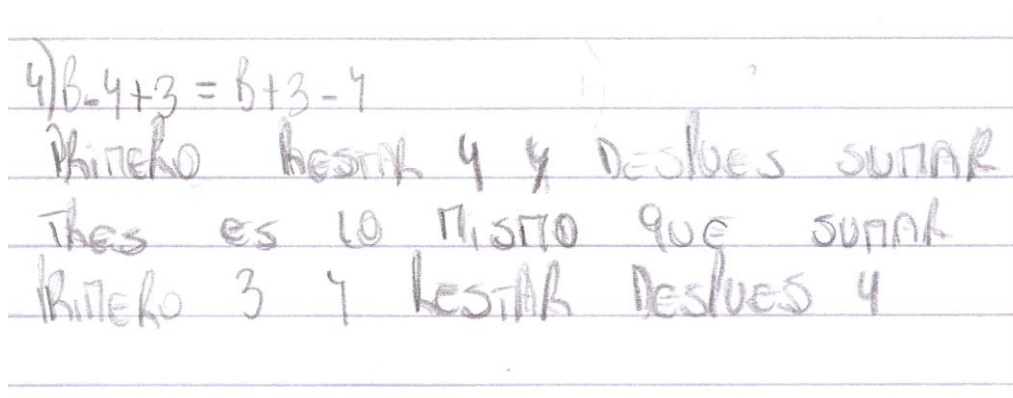 4) B-4+3 = B+3-4
PRIMERO RESTAR 4 Y DESPUES SUMAR
TRES ES LO MISMO QUE SUMAR
PRIMERO 3 Y RESTAR DESPUES 4